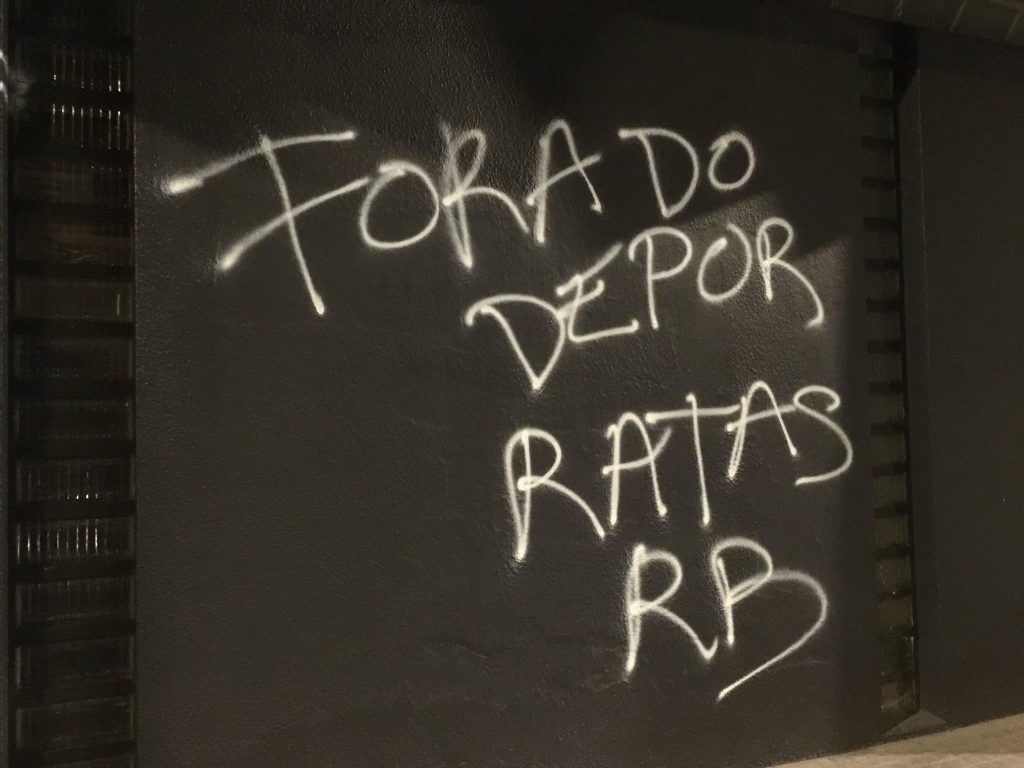 FORA DO
DEPOR
RATAS
RB